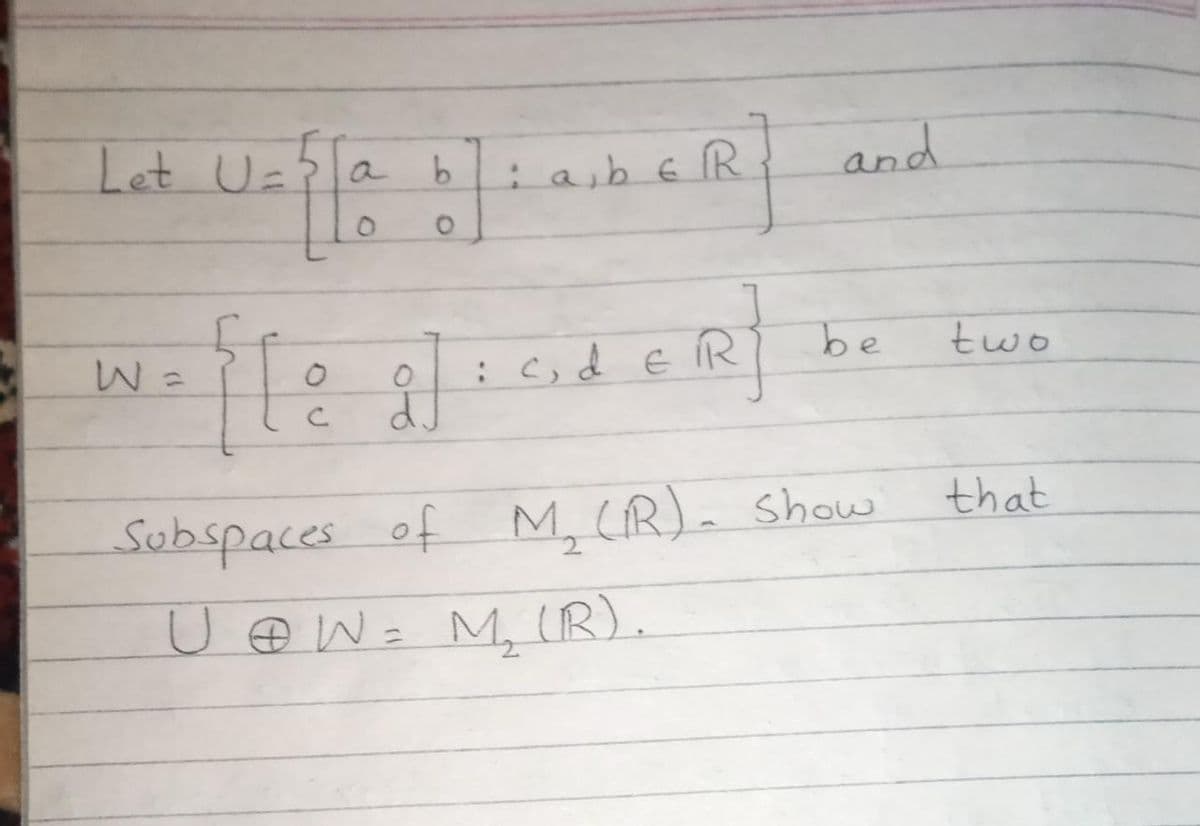 Let U = {[a b; 0 0] : a, b ∈ ℝ} and
W = {[0 0; c d] : c, d ∈ ℝ} be two
Subspaces of M₂(ℝ). Show that
U ⊕ W = M₂(ℝ).